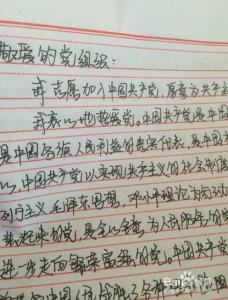 敬爱的党组织：
我志愿加入中国共产党，愿意为共产主
我衷心地热爱党。中国共产党是中国
是中国各族人民利益的忠实代表，是中国
以，中国共产党以实现共产主义的社会制度
列宁主义、毛泽东思想、邓小平理论为行动
装起来的党，是全心全意为人民服务的党
进步走向繁荣富强的党。中国共产党
中国人民
Bai 经验